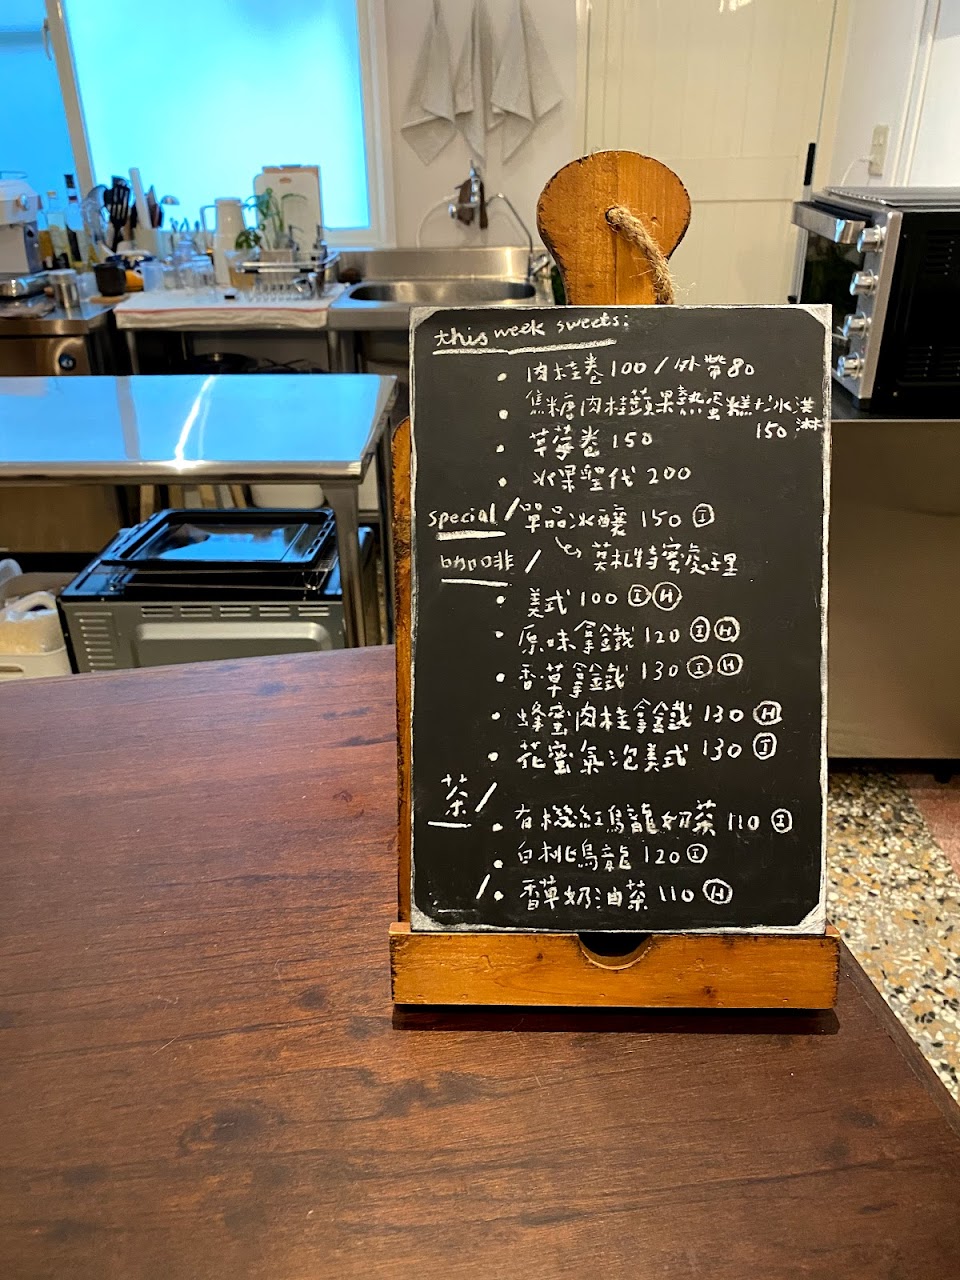 this week sweets:
• 肉桂卷 100 / 外帶80
• 焦糖肉桂蘋果熱蛋糕+冰淇淋 150
• 草莓卷 150
• 水果聖代 200
special / 單品冰釀 150 Ⓘ
咖啡 / 莫札特蜜處理
• 美式 100 ⒾⒽ
• 原味拿鐵 120 ⒾⒽ
• 香草拿鐵 130 ⒾⒽ
• 蜂蜜肉桂拿鐵 130 Ⓗ
• 花蜜氣泡美式 130 Ⓘ
茶 /
• 有機紅烏龍奶茶 110 Ⓘ
• 白桃烏龍 120 Ⓘ
/ • 香草奶油茶 110 Ⓗ